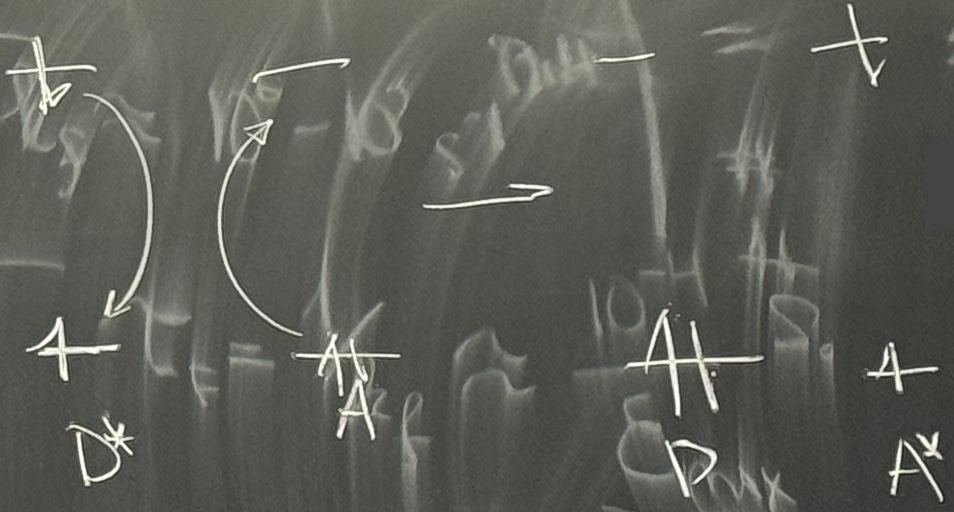 D* A D A*